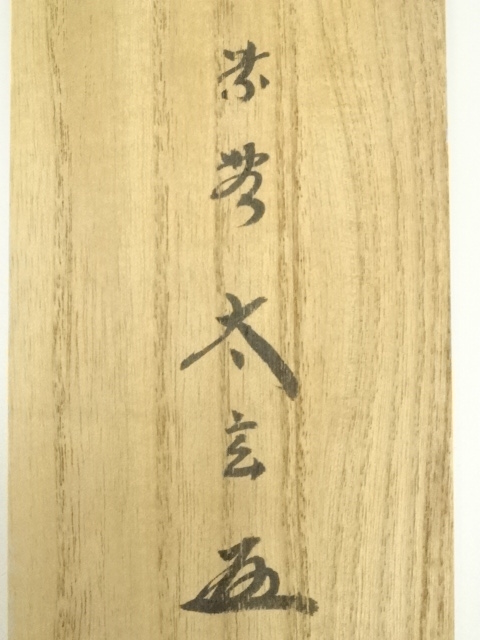 紫野太玄